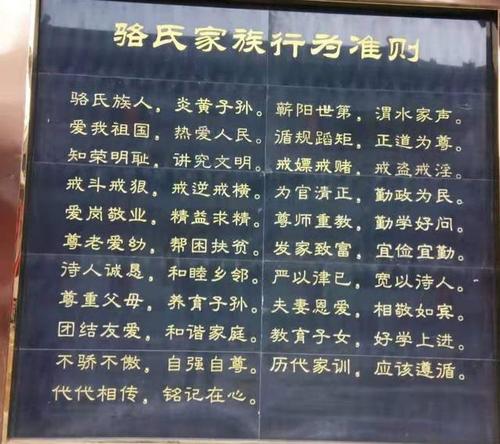 骆氏家族行为准则
骆氏族人，炎黄子孙。蕲阳世第，渭水家声。
爱我祖国，热爱人民。循规蹈矩，正道为尊。
知荣明耻，讲究文明。戒嫖戒赌，戒盗戒淫。
戒斗戒狠，戒逆戒横。为官清正，勤政为民。
爱岗敬业，精益求精。尊师重教，勤学好问。
尊老爱幼，帮困扶贫。发家致富，宜俭宜勤。
待人诚恳，和睦乡邻。严以律己，宽以待人。
尊重父母，养育子孙。夫妻恩爱，相敬如宾。
团结友爱，和谐家庭。教育子女，好学上进。
不骄不傲，自强自尊。历代家训，应该遵循。
代代相传，铭记在心。